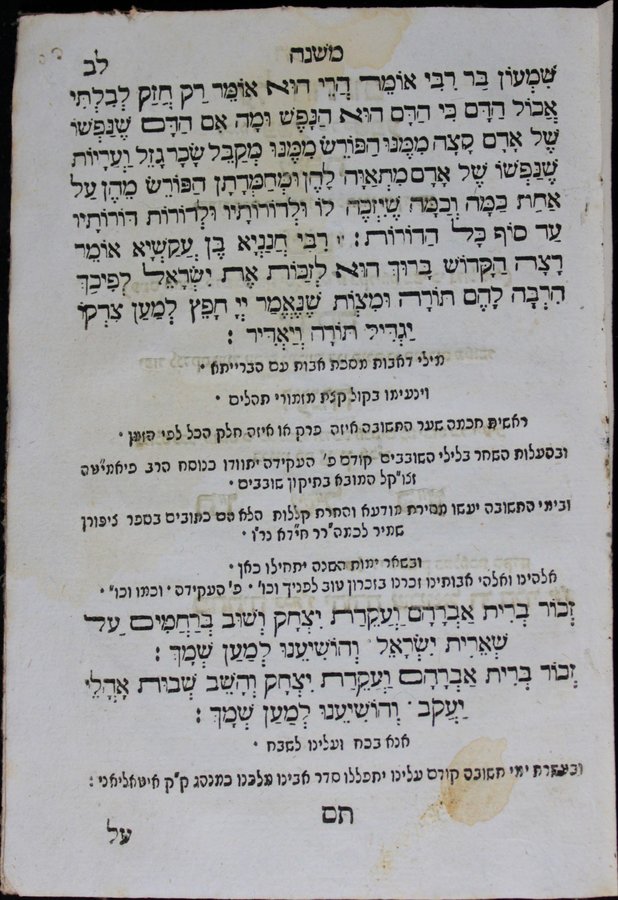 משנה
לב
שִׁמְעוֹן בַּר רִבִּי אוֹמֵר הֲרֵי הוּא אוֹמֵר רַק חֲזַק לְבִלְתִּי
אֲכוֹל הַדָּם כִּי הַדָּם הוּא הַנָּפֶשׁ וּמָה אִם הַדָּם שֶׁנַּפְשׁוֹ
שֶׁל אָדָם קָצָה מִמֶּנּוּ הַפּוֹרֵשׁ מִמֶּנּוּ מְקַבֵּל שָׂכָר גָּזֵל וַעֲרָיוֹת
שֶׁנַּפְשׁוֹ שֶׁל אָדָם מִתְאַוָּה לָהֶן וּמְחַמְּדָתָן הַפּוֹרֵשׁ מֵהֶן עַל
אַחַת כַּמָּה וְכַמָּה שֶׁיִּזְכֶּה לוֹ וּלְדוֹרוֹתָיו וּלְדוֹרוֹת דּוֹרוֹתָיו
עַד סוֹף כָּל הַדּוֹרוֹת : רַבִּי חֲנַנְיָא בֶּן עֲקַשְׁיָא אוֹמֵר
רָצָה הַקָּדוֹשׁ בָּרוּךְ הוּא לְזַכּוֹת אֶת יִשְׂרָאֵל לְפִיכָךְ
הִרְבָּה לָהֶם תּוֹרָה וּמִצְוֹת שֶׁנֶּאֱמַר יְיָ חָפֵץ לְמַעַן צִדְקוֹ
יַגְדִּיל תּוֹרָה וְיַאְדִּיר :
מילי דאבות מסכת אבות עם הברייתא •
וינעימו בקול קצת מזמורי תהלים •
ראשית חכמה שער התשובה איזה פרק או איזה חלק הכל לפי הזמן •
ובהעלות השחר בלילי השובבים קודם פ׳ העקידה יתוודו כנוסח הרב פיאמיטה
זצו״קל המובא בתיקון שובבים •
ובימי התשובה יעשו מסירת מודעא והתרת קללות הלא הם כתובים בספר ציפורן
שמיר לכמה״רר חי״דא נר״ו
ובשאר ימות השנה יתחילו כאן •
אלהינו ואלהי אבותינו זכרנו בזכרון טוב לפניך וכו׳ • פ׳ העקידה • וכמו וכו׳ •
זְכוֹר בְּרִית אַבְרָהָם וַעֲקֵדַת יִצְחָק וְשׁוּב בְּרַחֲמִים עַל
שְׁאֵרִית יִשְׂרָאֵל וְהוֹשִׁיעֵנוּ לְמַעַן שְׁמֶךָ :
זְכוֹר בְּרִית אַבְרָהָם וַעֲקֵדַת יִצְחָק וְהָשֵׁב שְׁבוּת אָהֳלֵי
יַעֲקֹב וְהוֹשִׁיעֵנוּ לְמַעַן שְׁמֶךָ :
אנא בכח ועלינו לשבח •
ובעשרת ימי תשובה קודם עלינו יתפללו סדר אבינו מלכנו כמנהג ק״ק איטאליאני :
תם
על